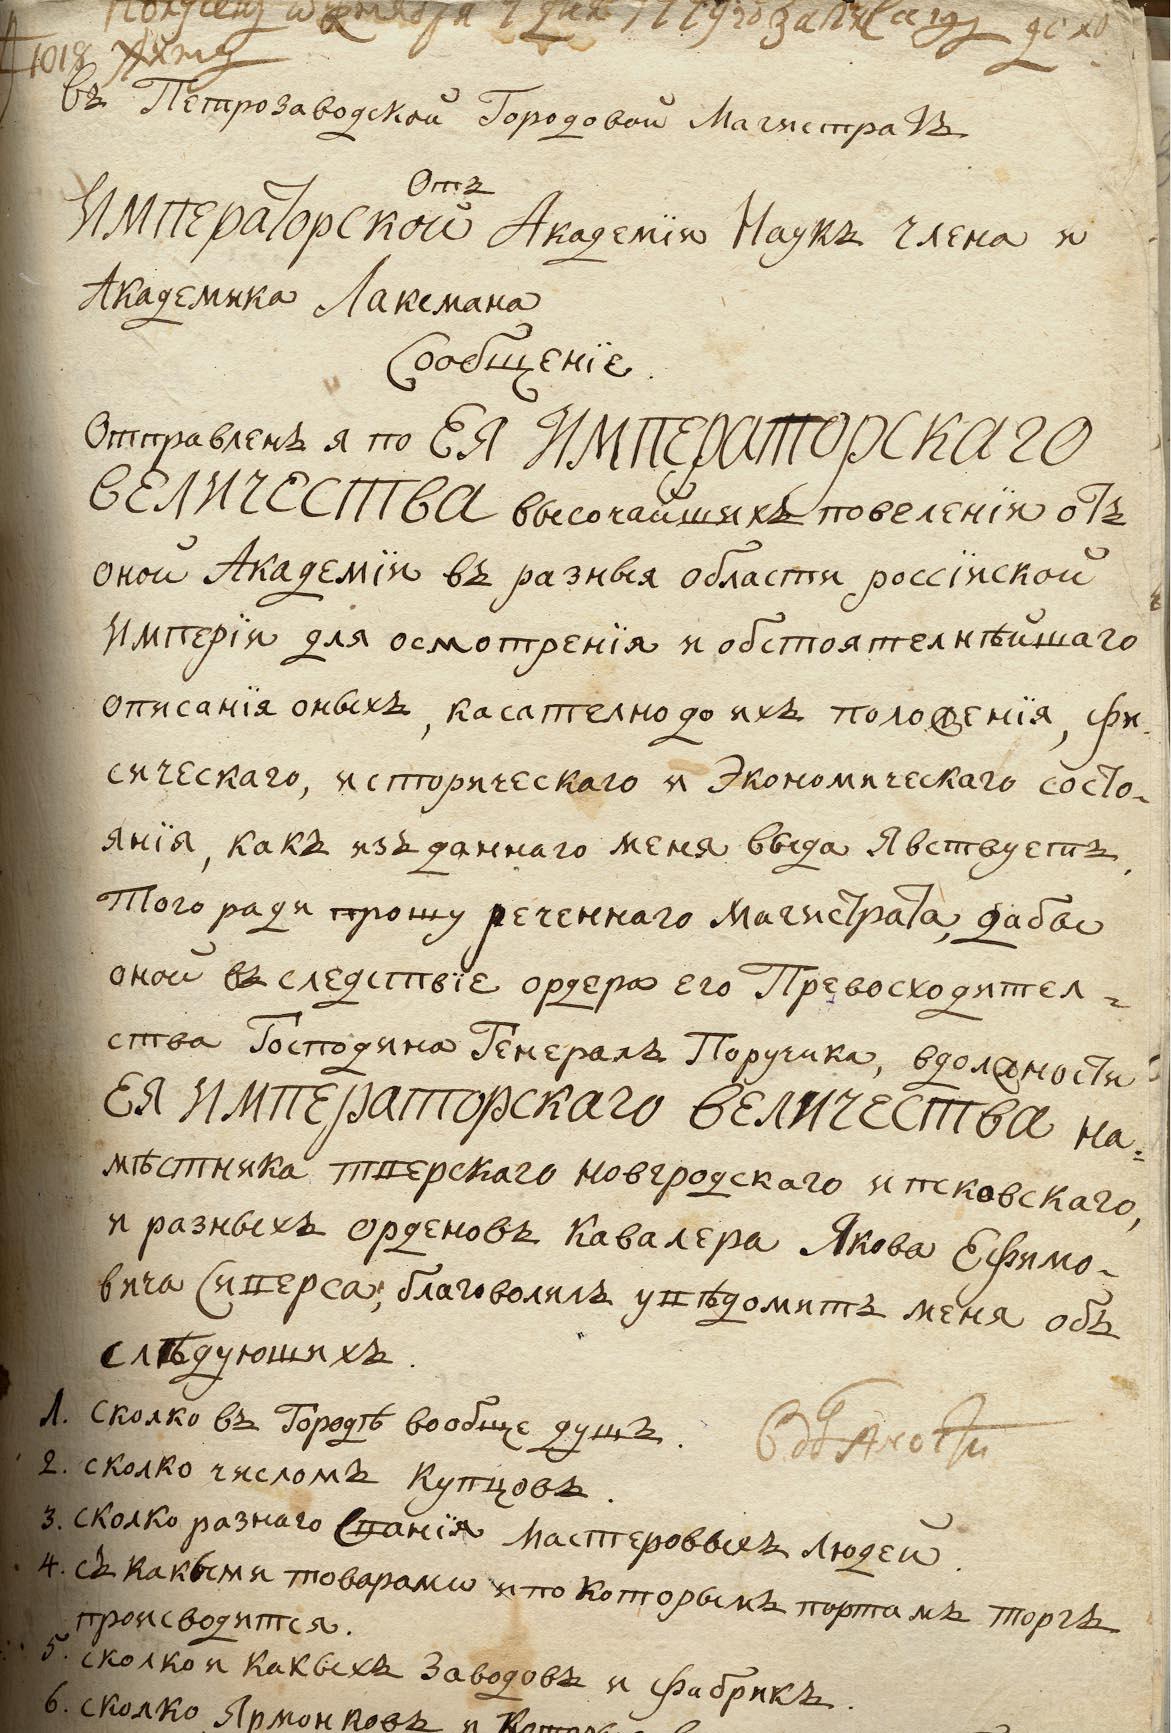 1018
въ Петрозаводской Городовой Магистратъ
Отъ
ИМПЕРАТОРСКОЙ Академїи Наукъ члена и
Академика Лаксмана
Сообщенїе.
Отправленъ я по ЕЯ ИМПЕРАТОРСКАГО
ВЕЛИЧЕСТВА высочайшихъ повеленїи отъ
оной Академїи въ разныя области россїиской
Имперїи для осмотренїя и обстоятелнѣйшаго
описанїя оныхъ, касателно до ихъ положенїя, фи-
сическаго, историческаго и Экономическаго состо-
янїя, какъ изъ даннаго меня вида явствуетъ,
Того ради прошу реченнаго Магистрата, дабы
оной въ следствїе ордера его Превосходител-
ства Господина Генералъ Поручика, вдолжности
ЕЯ ИМПЕРАТОРСКАГО ВЕЛИЧЕСТВА на-
мѣстника тверскаго новгродскаго и псковскаго,
и разныхъ орденовъ Кавалера Якова Ефимо-
вича Сиверса, благоволилъ увѣдомить меня объ
слѣдуюшихъ.
1. сколко въ Городѣ вообще душъ.
2. сколко числомъ Купцовъ.
3. сколко разнаго званїя мастеровыхъ людей.
4. съ какыми товарами и по которымъ портамъ торгъ
произсводится.
5. сколко и какыхъ Заводовъ и фабрикъ.
6. сколко Ярмонковъ и